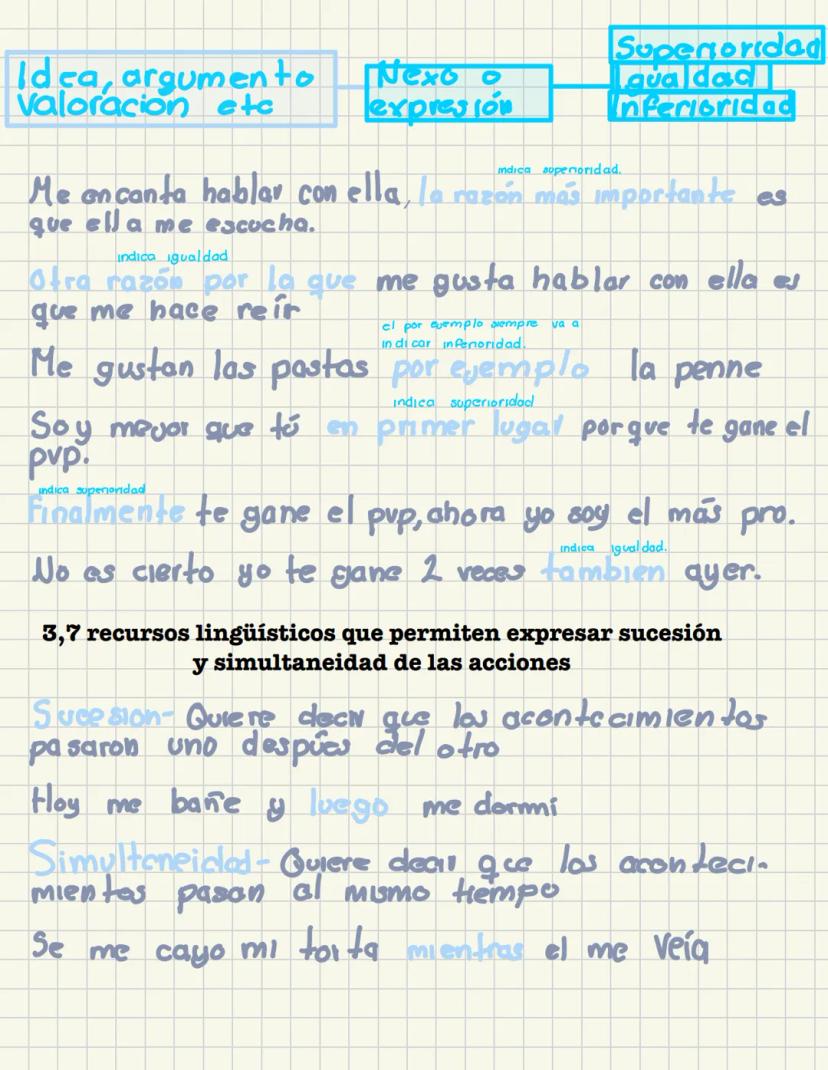 Idea, argumento
Valoracion etc
Nexo o
expresión
Superioridad
Igualdad
Inferioridad
indica superioridad.
Me encanta hablar con ella, la razón más importante es
que ella me escucha.
indica igualdad
Otra razón por la que me gusta hablar con ella es
que me hace reír
el por ejemplo siempre va a
indicar inferioridad.
Me gustan las pastas por ejemplo la penne
indica superioridad
Soy mejor que tú en primer lugar porque te gane el
pvp.
indica superioridad
Finalmente te gane el pvp, ahora yo soy el más pro.
indica igualdad.
No es cierto yo te gane 2 veces tambien ayer.
3,7 recursos lingüísticos que permiten expresar sucesión
y simultaneidad de las acciones
Sucesion- Quiere decir que los acontecimientos
pasaron uno despúes del otro
Hoy me bañe y luego me dormi
Simultaneidad- Quiere decir que los aconteci-
mientos pasan al mismo tiempo
Se me cayo mi torta mientras el me veía